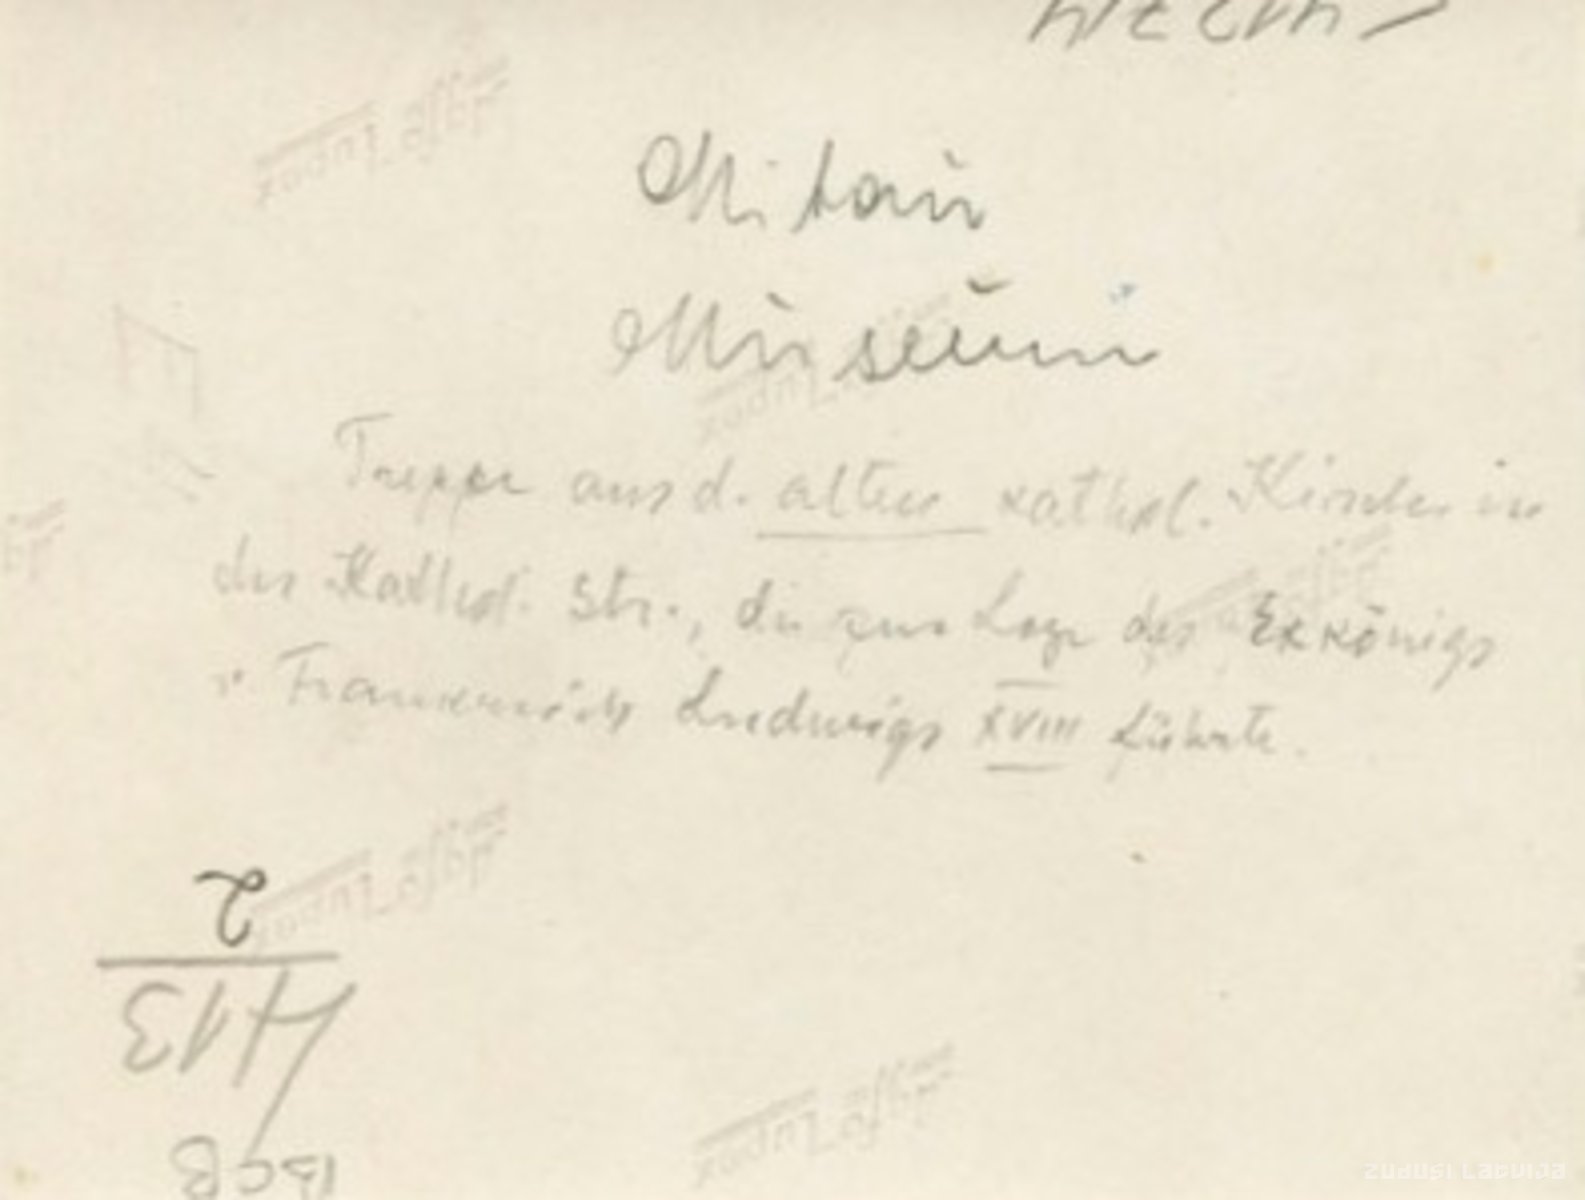 Mitau
Museum
Treppe aus d. alten kathol. Kirche in
der Kathol. Str., die zur Loge des Exkönigs
v. Frankreich Ludwigs XVIII führte.
2
413
zudusi Latvija